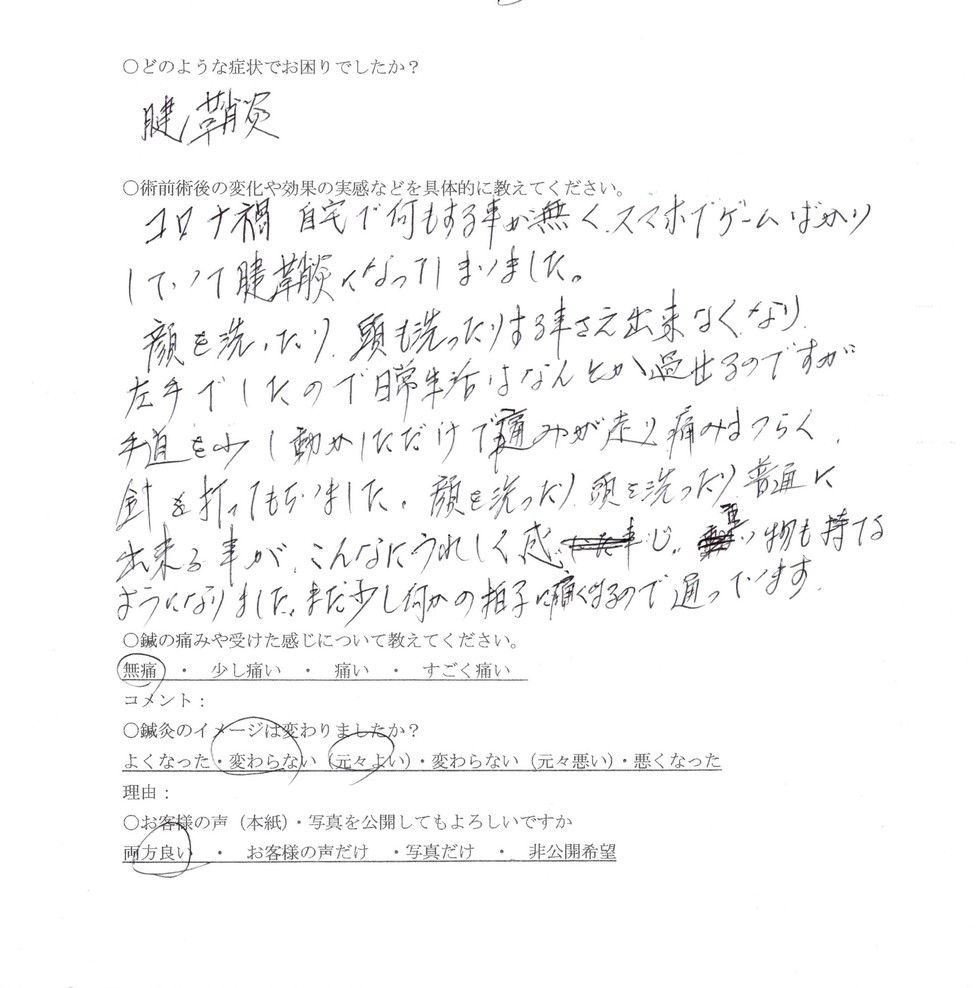 ○どのような症状でお困りでしたか？
腱鞘炎
○術前術後の変化や効果の実感などを具体的に教えてください。
コロナ禍 自宅で何もする事が無く、スマホでゲームばかり
していて腱鞘炎になってしまいました。
顔を洗ったり、頭も洗ったりする事さえ出来なくなり、
左手でしたので日常生活はなんとか過出るのですが
手首を少し動かしただけで痛みが走り痛みはつらく、
針を打ってもらいました。顔を洗ったり、頭を洗ったり、普通に
出来る事が、こんなにうれしく感じ。重い物も持てる
ようになりました。まだ少し何かの拍子に痛くなるので通っています。
○鍼の痛みや受けた感じについて教えてください。
無痛 ・ 少し痛い ・ 痛い ・ すごく痛い
コメント：
○鍼灸のイメージは変わりましたか？
よくなった・変わらない（元々よい）・変わらない（元々悪い）・悪くなった
理由：
○お客様の声（本紙）・写真を公開してもよろしいですか
両方良い ・ お客様の声だけ ・写真だけ ・ 非公開希望